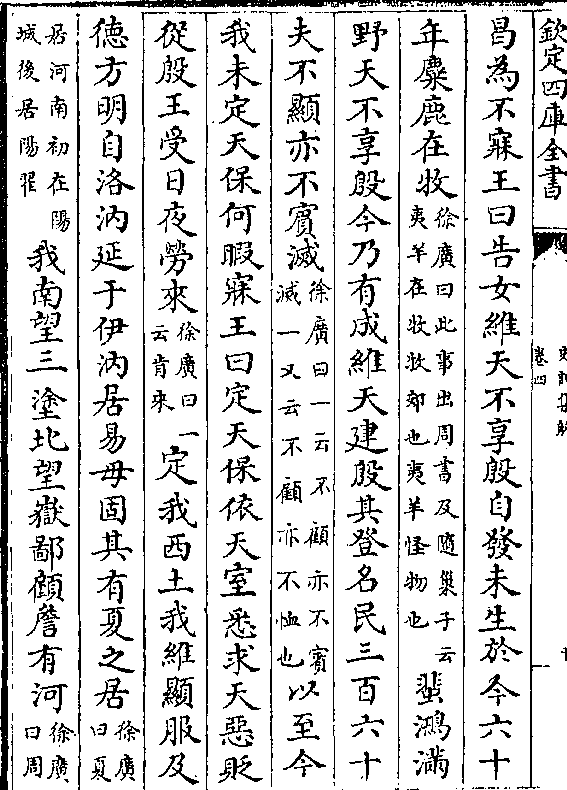 欽定四庫全書
史記集解
卷四
昌為不寐王曰告女維天不享殷自發未生於今六十
年麋鹿在牧徐廣曰此事出周書及隨巢子云夷羊在牧牧郊也夷羊怪物也蜚鴻滿
野天不享殷今乃有成維天建殷其登名民三百六十
夫不顯亦不賓滅徐廣曰一云不顧亦不賓滅一又云不顧亦不恤也以至今
我未定天保何暇寐王曰定天保依天室悉求天惡貶
從殷王受日夜勞來徐廣曰一云肯來定我西土我維顯服及
德方明自洛汭延于伊汭居易毋固其有夏之居徐廣曰夏
居河南初在陽城後居陽翟我南望三塗北望嶽鄙顧詹有河徐廣曰周